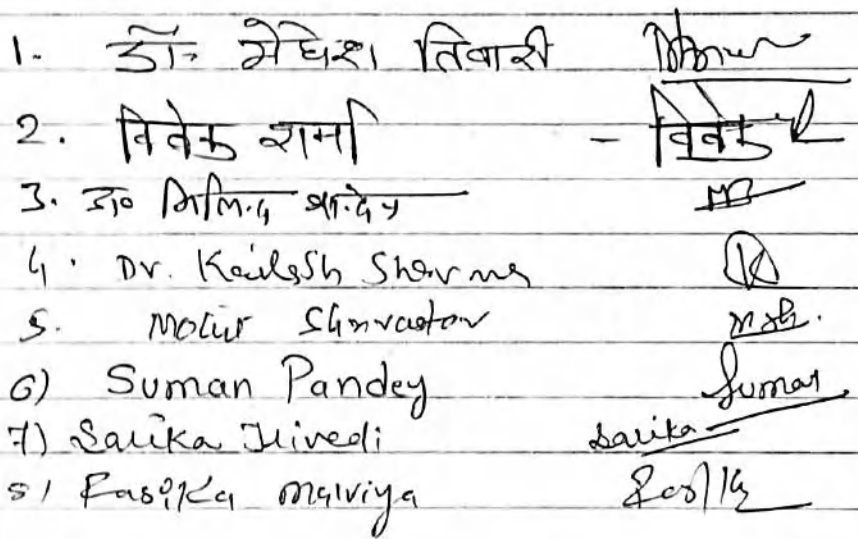 1. डॉ. मेघेश तिवारी
2. विवेक शर्मा - विवेक
3. डॉ० मिलिन्द
4. Dr. Kailash Sharma
5. Mohit Shrivastav
6) Suman Pandey Suman
7) Sarika Trivedi Sarika
8) Rasika Malviya